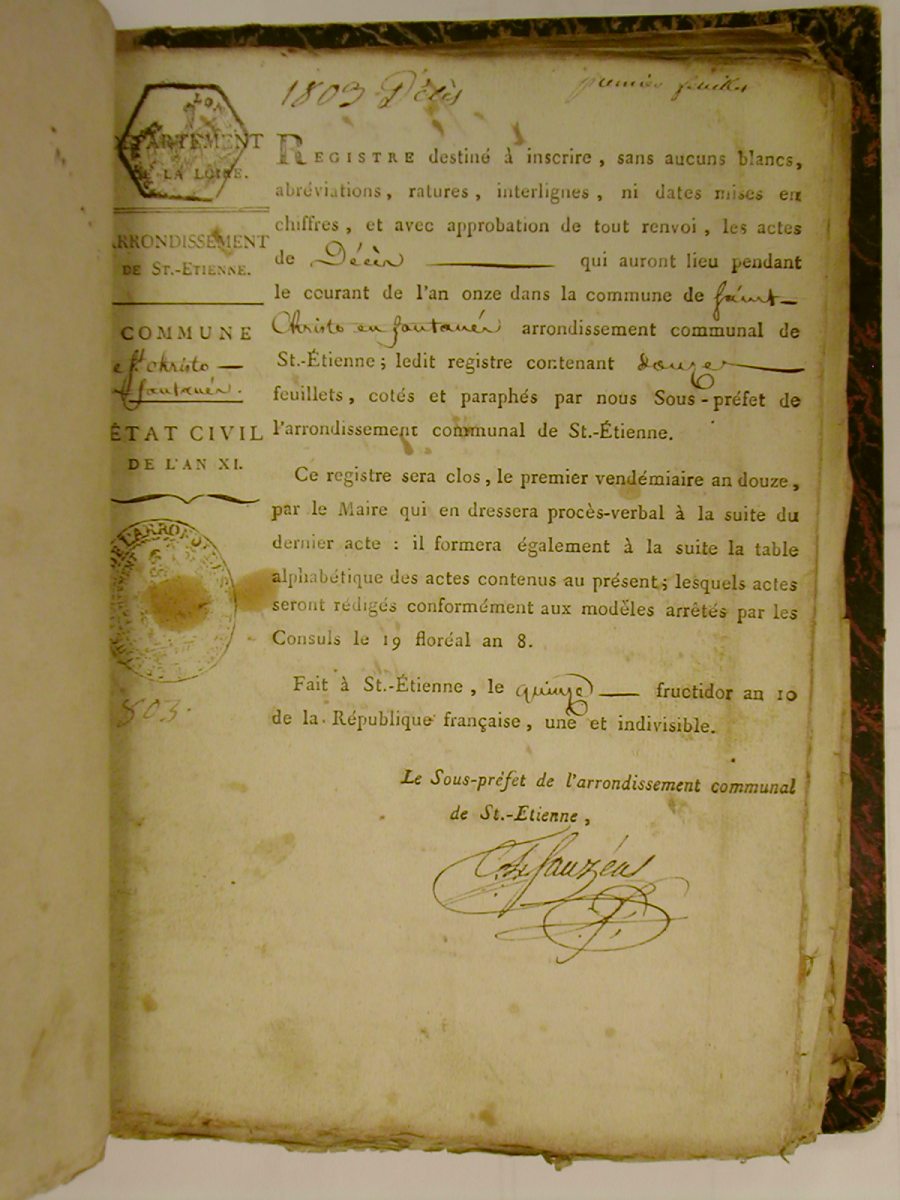 1803 Décès
premier feuillet
DÉPARTEMENT
DE LA LOIRE.
ARRONDISSEMENT
DE ST.-ETIENNE.
COMMUNE
de St. Christo
en fontanès.
ÉTAT CIVIL
DE L'AN XI.
DE L'ARROND
1803.
REGISTRE destiné à inscrire, sans aucuns blancs,
abréviations, ratures, interlignes, ni dates mises en
chiffres, et avec approbation de tout renvoi, les actes
de Décès qui auront lieu pendant
le courant de l'an onze dans la commune de saint
Christo en fontanès arrondissement communal de
St.-Étienne; ledit registre contenant douze
feuillets, cotés et paraphés par nous Sous-préfet de
l'arrondissement communal de St.-Étienne.
Ce registre sera clos, le premier vendémiaire an douze,
par le Maire qui en dressera procès-verbal à la suite du
dernier acte : il formera également à la suite la table
alphabétique des actes contenus au présent; lesquels actes
seront rédigés conformément aux modèles arrêtés par les
Consuls le 19 floréal an 8.
Fait à St.-Étienne, le quinze fructidor an 10
de la République française, une et indivisible.
Le Sous-préfet de l'arrondissement communal
de St.-Etienne,
Sauzéas